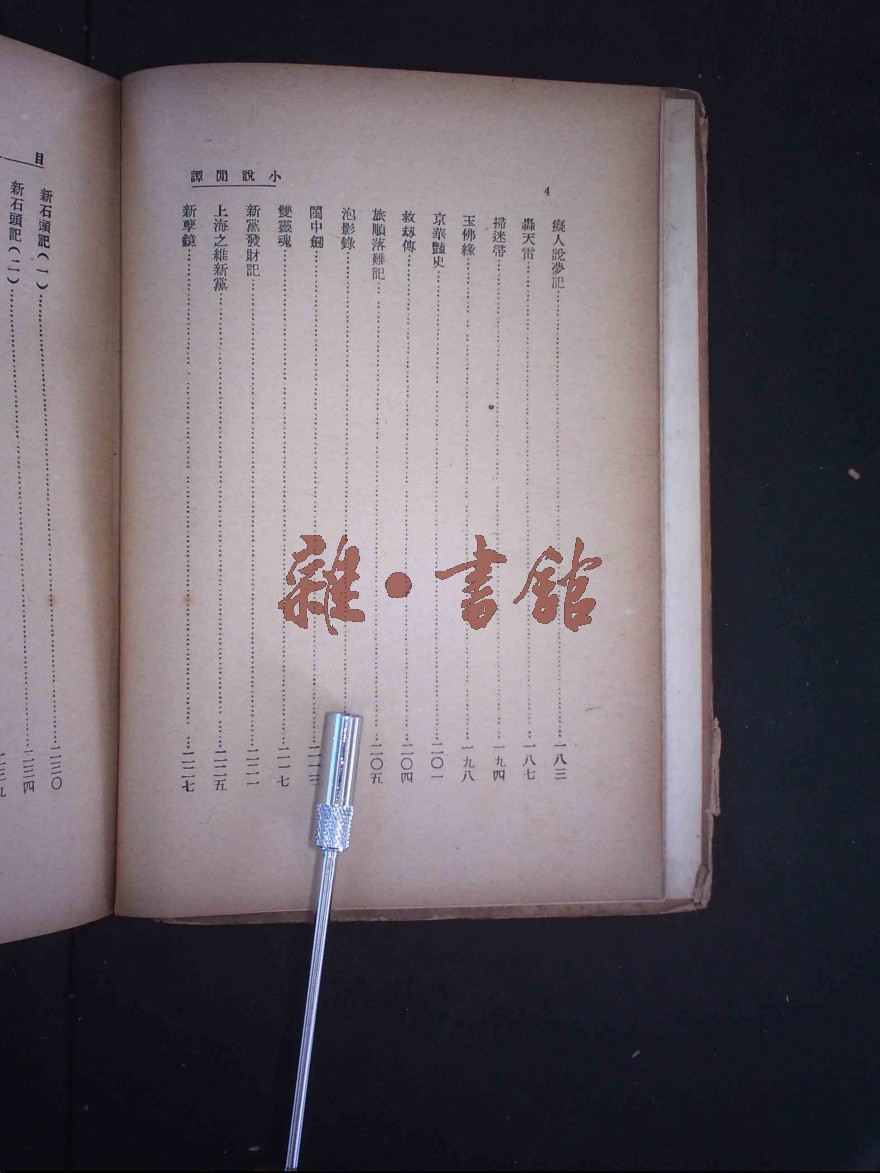 4
小說閒譚
癡人說夢記……一八三
轟天雷……一八七
掃迷帚……一九四
玉佛緣……一九八
京華豔史……二〇一
救刼傳……二〇四
旅順落難記……二〇五
泡影錄……
閨中劍……二一三
雙靈魂……二一七
新黨發財記……二二一
上海之維新黨……二二五
新孽鏡……二二七
目
新石頭記(一)……二三〇
新石頭記(二)……二三四
二三九
雜·書館